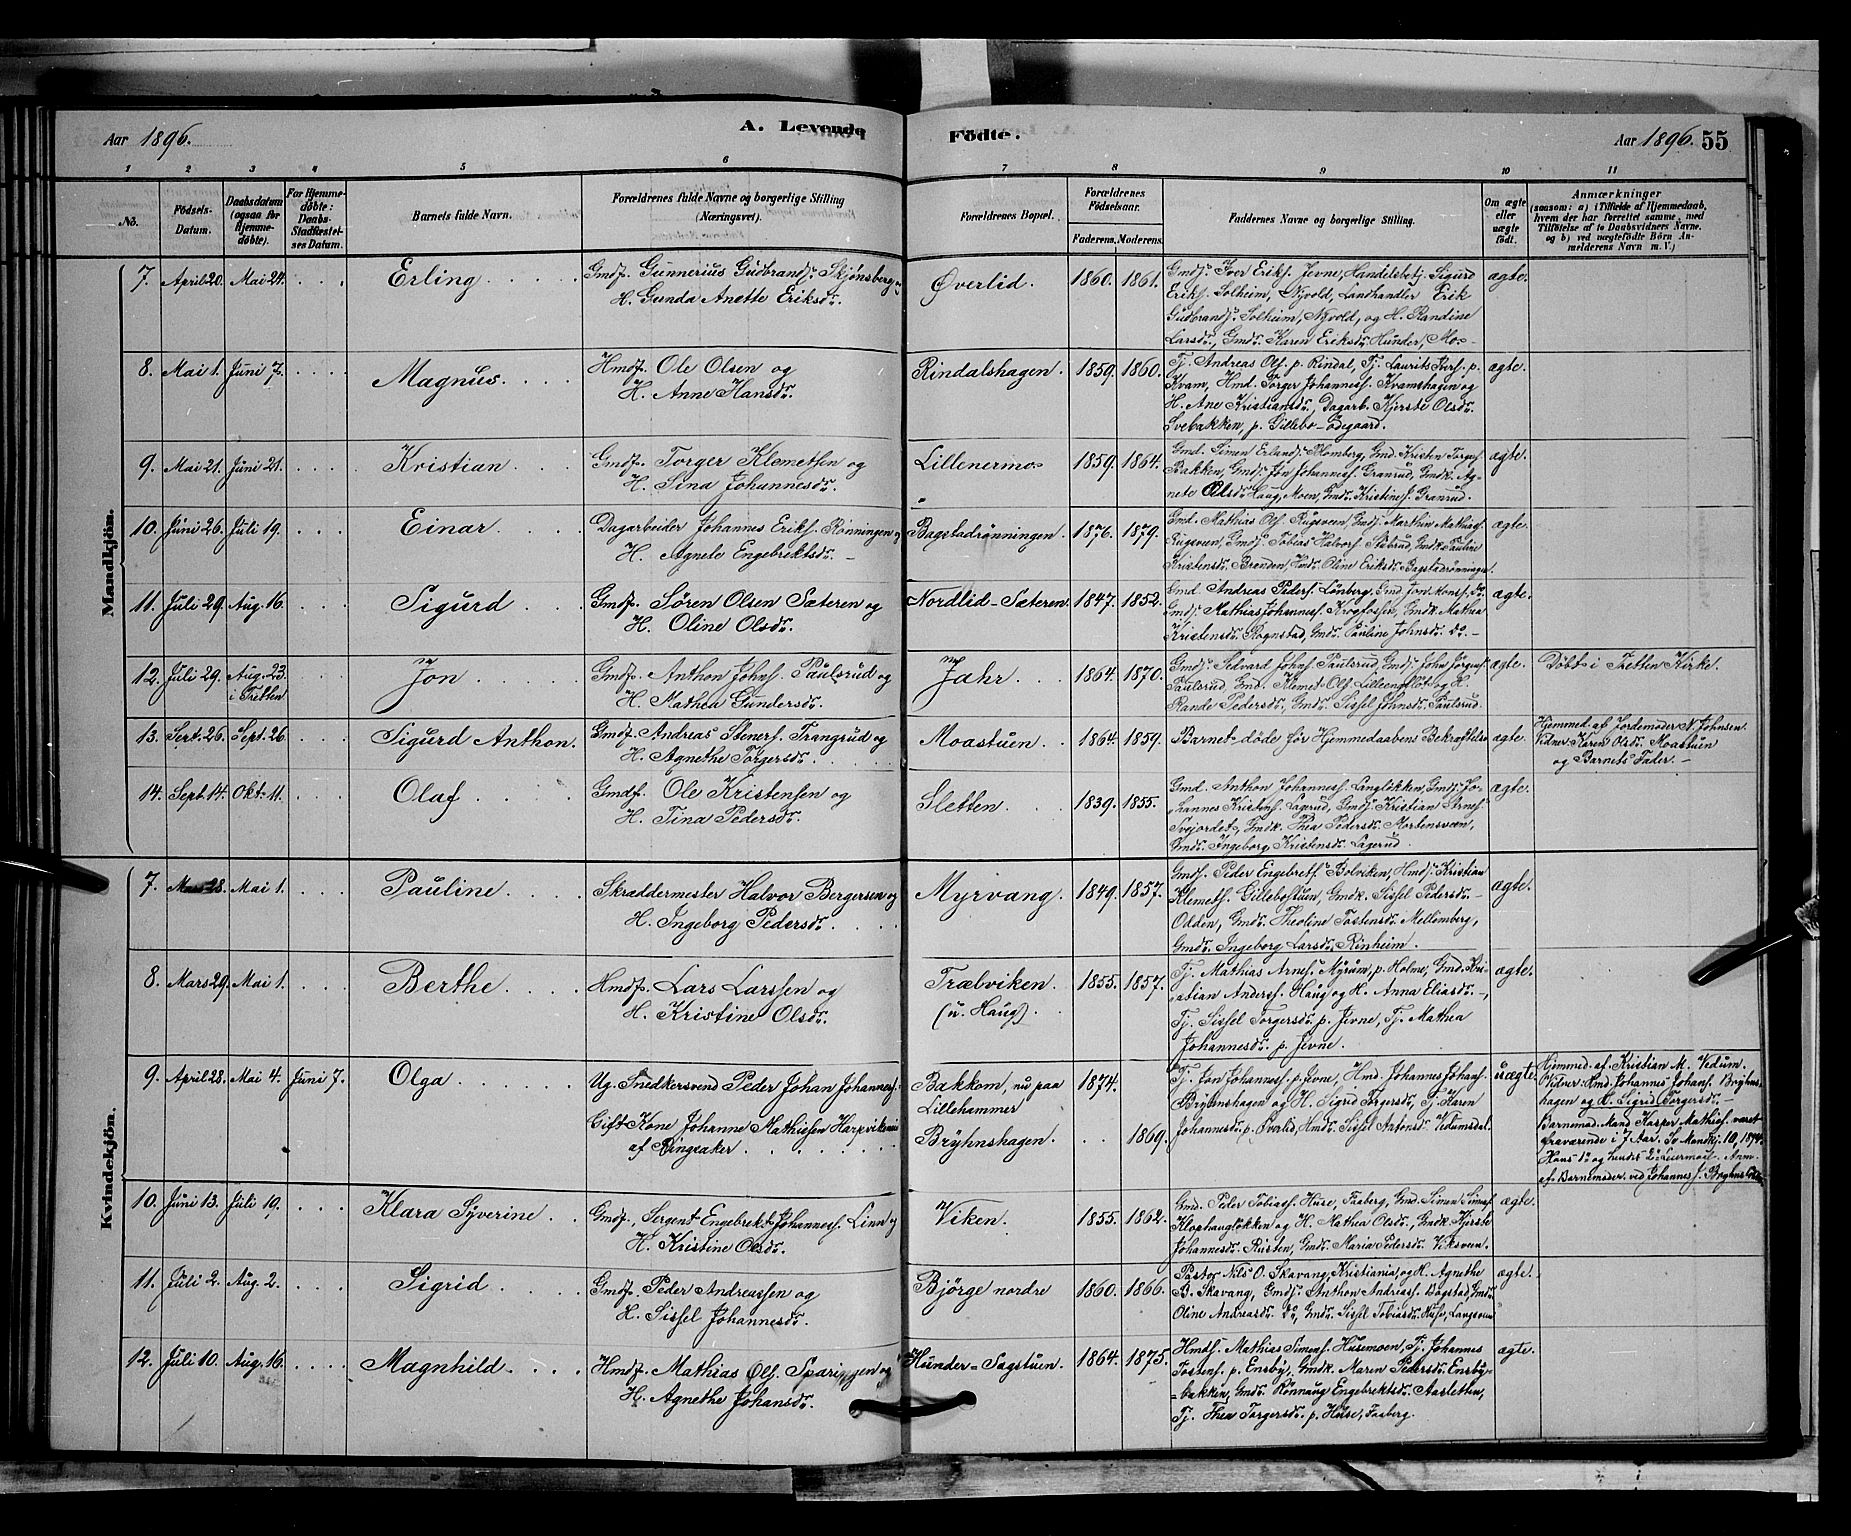 Aar 1896.
A. Levende
Födte.
Aar 1896.
55
1 2 3 4 5 6 7 8 9 10 11
No.
Födsels-
Datum.
Daabsdatum
(ogsaa for
Hjemme-
döbte).
For Hjemme-
döbte:
Daabs-
Stadfæstel-
ses Datum.
Barnets fulde Navn.
Forældrenes fulde Navne og borgerlige Stilling
(Næringsvei).
Forældrenes Bopæl.
Forældrenes
Födselsaar.
Faderens. Moderens.
Faddernes Navne og borgerlige Stilling.
Om ægte
eller
uægte
født.
Anmærkninger
(saasom: a) i Tilfælde af Hjemmedaab,
hvem der har forrettet samme, med
Tilföielse af to Daabsvidners Navne.
og b) ved uægtefödte Börn An-
melderens Navn m. V.)
Mandkjön.
7. April 20. Mai 24. Erling
Gmdf. Gunnerius Gudbrandf. Skjönsberg og
H. Gunda Anette Eriksdr.
Øverlid. 1860. 1861.
Gmdf. Iver Eriks. Jevne, Handelsbetj. Sigurd
Eriks. Solheim, Nyvold, Landhandler Erik
Gudbrands. Solheim, Nyvold, og H. Randine
Larsdr., Gmdr. Karen Eriksdr. Hunder, Mo-
ægte.
8. Mai 1. Juni 7. Magnus.
Hmdf. Ole Olsen og
H. Anne Hansdr.
Rindalshagen. 1859. 1860.
Tj. Andreas Ols. p. Rindal, Tj. Laurits Pers. p.
Kvam, Hmd. Torger Johanness. Kvamshagen og
H. Ane Kristiansdr., Dagarb. Kjerste Olsdr.
Svebakken, p. Gillebo-ödegaard.
ægte.
9. Mai 21. Juni 21. Kristian
Gmdf. Torger Klemetsen og
H. Sina Johannesdr.
Lillenermo 1859. 1864.
Gmd. Simen Erlands. Blomberg, Gmd. Kristen Torgers.
Bakken, Gmds. Jon Johanness. Granrud, Gmdk. Ag-
nete Olsdr. Haug, Moen, Gmdr. Kristine J. Granrud.
ægte.
10. Juni 26. Juli 19. Einar
Dagarbeider Johannes Eriks. Rönningen og
H. Agnete Engebriktsdr.
Bagstadrønningen. 1876. 1879.
Gmd. Mathias Ols. Rugsveen, Gmds. Marthin Mathias.
Rugsveen, Gmds. Tobias Halvors. Stubrud, Gmdk. Pauline
Kristensdr. Brenden, Hmdr. Oline Eriksdr. Bagstadrönningen.
ægte.
11. Juli 29. Aug. 16. Sigurd
Gmdf. Sören Olsen Sæteren og
H. Oline Olsdr.
Nordlid-Sæteren. 1847. 1852.
Gmd. Andreas Peders. Lönberg, Gmd. Jon Hans. Do.
Gmds. Mathias Johanness. Krogfossen, Gmdk. Mathea
Kristensdr. Rognstad, Gmdr. Pauline Johnsdr. Do.
ægte.
12. Juli 29. Aug. 23.
i Tretten
Jon
Gmdf. Anthon Johns. Paulsrud og
H. Mathea Gundersdr.
Jahr. 1864. 1870.
Gmds. Edvard Johns. Paulsrud, Gmds. John Jörgens.
Paulsrud, Gmd. Klemet Ols. Lilleengflöt og H.
Rande Pedersdr., Gmdr. Sissel Johnsdr. Paulsrud.
ægte.
Döbt i Tretten Kirke.
13. Sept. 26. Sept. 26 Sigurd Anthon.
Gmdf. Andreas Steners. Trangrud og
H. Agnethe Torgersdr.
Moastuen 1864. 1859.
Barnet döde för Hjemmedaabens Bekræftelse
ægte.
Hjemmed. af Jordemoder N. Johnsen.
Vidner: Karen Olsdr. Moastuen
og Barnets Fader.
14. Sept. 14. Okt. 11. Olaf
Gmdf. Ole Kristensen og
H. Tina Pedersdr.
Sletten. 1839. 1855.
Gmd. Anthon Johanness. Langlökken, Gmds. Jo-
hannes Kristens. Lagerud, Gmds. Kristian Arnes.
Svejordet, Gmdk. Thea Pedersdr. Mortensveen,
Gmdr. Ingeborg Kristensdr. Lagerud.
ægte.
Kvindekjön.
7. Mars 28. Mai 1. Pauline
Skræddermester Halvor Bergersen og
H. Ingeborg Pedersdr.
Myrvang. 1849. 1857.
Gmds. Peder Engebrets. Bolviken, Hmds. Kristian
Klemets. Gillebostuen, Gmdk. Sissel Pedersdr.
Odden, Gmdr. Theoline Tostensdr. Mellemberg,
Gmdr. Ingeborg Larsdr. Rinheim.
ægte.
8. Mars 29. Mai 1. Berthe
Hmdf. Lars Larssen og
H. Kristine Olsdr.
Trælviken
(u. Haug).
1855. 1857.
Tj. Mathias Arnes. Myrum, p. Holme, Gmd. Kri-
stian Anders. Haug og H. Anna Eliasdr.,
Tj. Sissel Torgersdr. p. Jevne, Tj. Mathea
Johannesdr. p. Jevne.
ægte.
9. April 28. Mai 4. Juni 7. Olga
Ug. Snedkersvend Peder Johan Johannes.
Gift Kone Johanne Mathissen Harpviken
af Ringsaker.
Bakkom, nu paa
Lillehammer
Bryhnshagen.
1874.
1869.
Tj. Jon Johanness. p. Jevne, Hmd. Johannes Johans.
Bryhnshagen og H. Sigrid Torgersdr., Tj. Karen
Johannesdr. p. Øverlid, Hmdr. Sissel Antonsdr. Vedumsdal.
uægte.
Hjemmed. af Kristian M. Vedum.
Vidner: Hmd. Johannes Johans. Bryhns-
hagen og H. Sigrid Torgersdr.
Barnemod. Mand Kasper Mathies. været
fraværende i 7 Aar. Se Mandkj. 10, 1894.
Hans 1ste og hendes 2det Leiermaal. Anm.
af Barnemoder ved Johannes J. Bryhnshagen
10. Juni 13. Juli 19. Klara Syverine
Gmdf., Sergent Engebrekt Johanness. Linn og
H. Kristine Olsdr.
Viken. 1855. 1862.
Gmd. Peder Tobiass. Huse, Faaberg, Gmd. Simen Simens.
Klophauglökken og H. Mathea Olsdr., Gmdk. Kjerste
Johannesdr. Rusten, Gmdr. Maria Pedersdr. Viksveen.
ægte.
11. Juli 2. Aug. 2. Sigrid
Gmdf. Peder Andreassen og
H. Sissel Johannesdr.
Bjørge nordre 1860. 1866.
Pastor Nils O. Skavang, Kristiania, og H. Agnethe
B. Skavang, Gmds. Anthon Andreass. Bagstad, Gmdr.
Oline Andreasdr. Do, Gmdr. Sissel Tobiasdr. Huse, Langsveen
ægte.
12. Juli 10. Aug. 16. Magnhild
Hmdf. Mathias Ols. Sparingen og
H. Agnethe Johansdr.
Hunder-Sagstuen. 1864. 1875.
Hmds. Mathias Simens. Husemoen, Tj. Johannes
Tostens. p. Ensby, Gmdk. Maren Pedersdr. Ensby-
bakken, Gmdr. Rönnaug Engebrektsdr. Aarsletten,
Tj. Thea Torgersdr. p. Huse, Faaberg.
ægte.